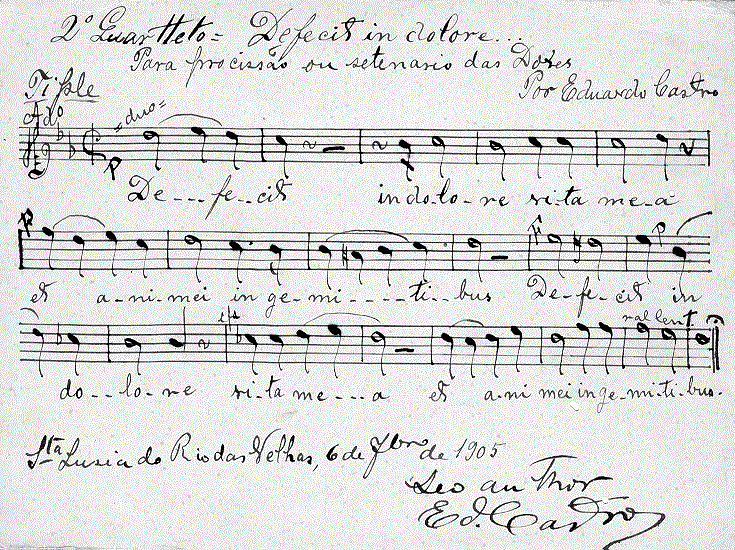 2º Quartteto = Defecit in dolore...
Para procissão ou setenario das Dores
Tiple
Por Eduardo Castro
Adº
=duo=
P
De---fe--cit in do-lo-re vi-ta me-a
P F P
et a-ni-mei in ge-mi----ti-bus De-fe-cit in
rallent.
do--lo-re vi-ta me---a et a-ni mei in ge-mi-ti-bus.
Sta Lusia do Rio das Velhas, 6 de 7bro de 1905
Seo author
Ed. Castro